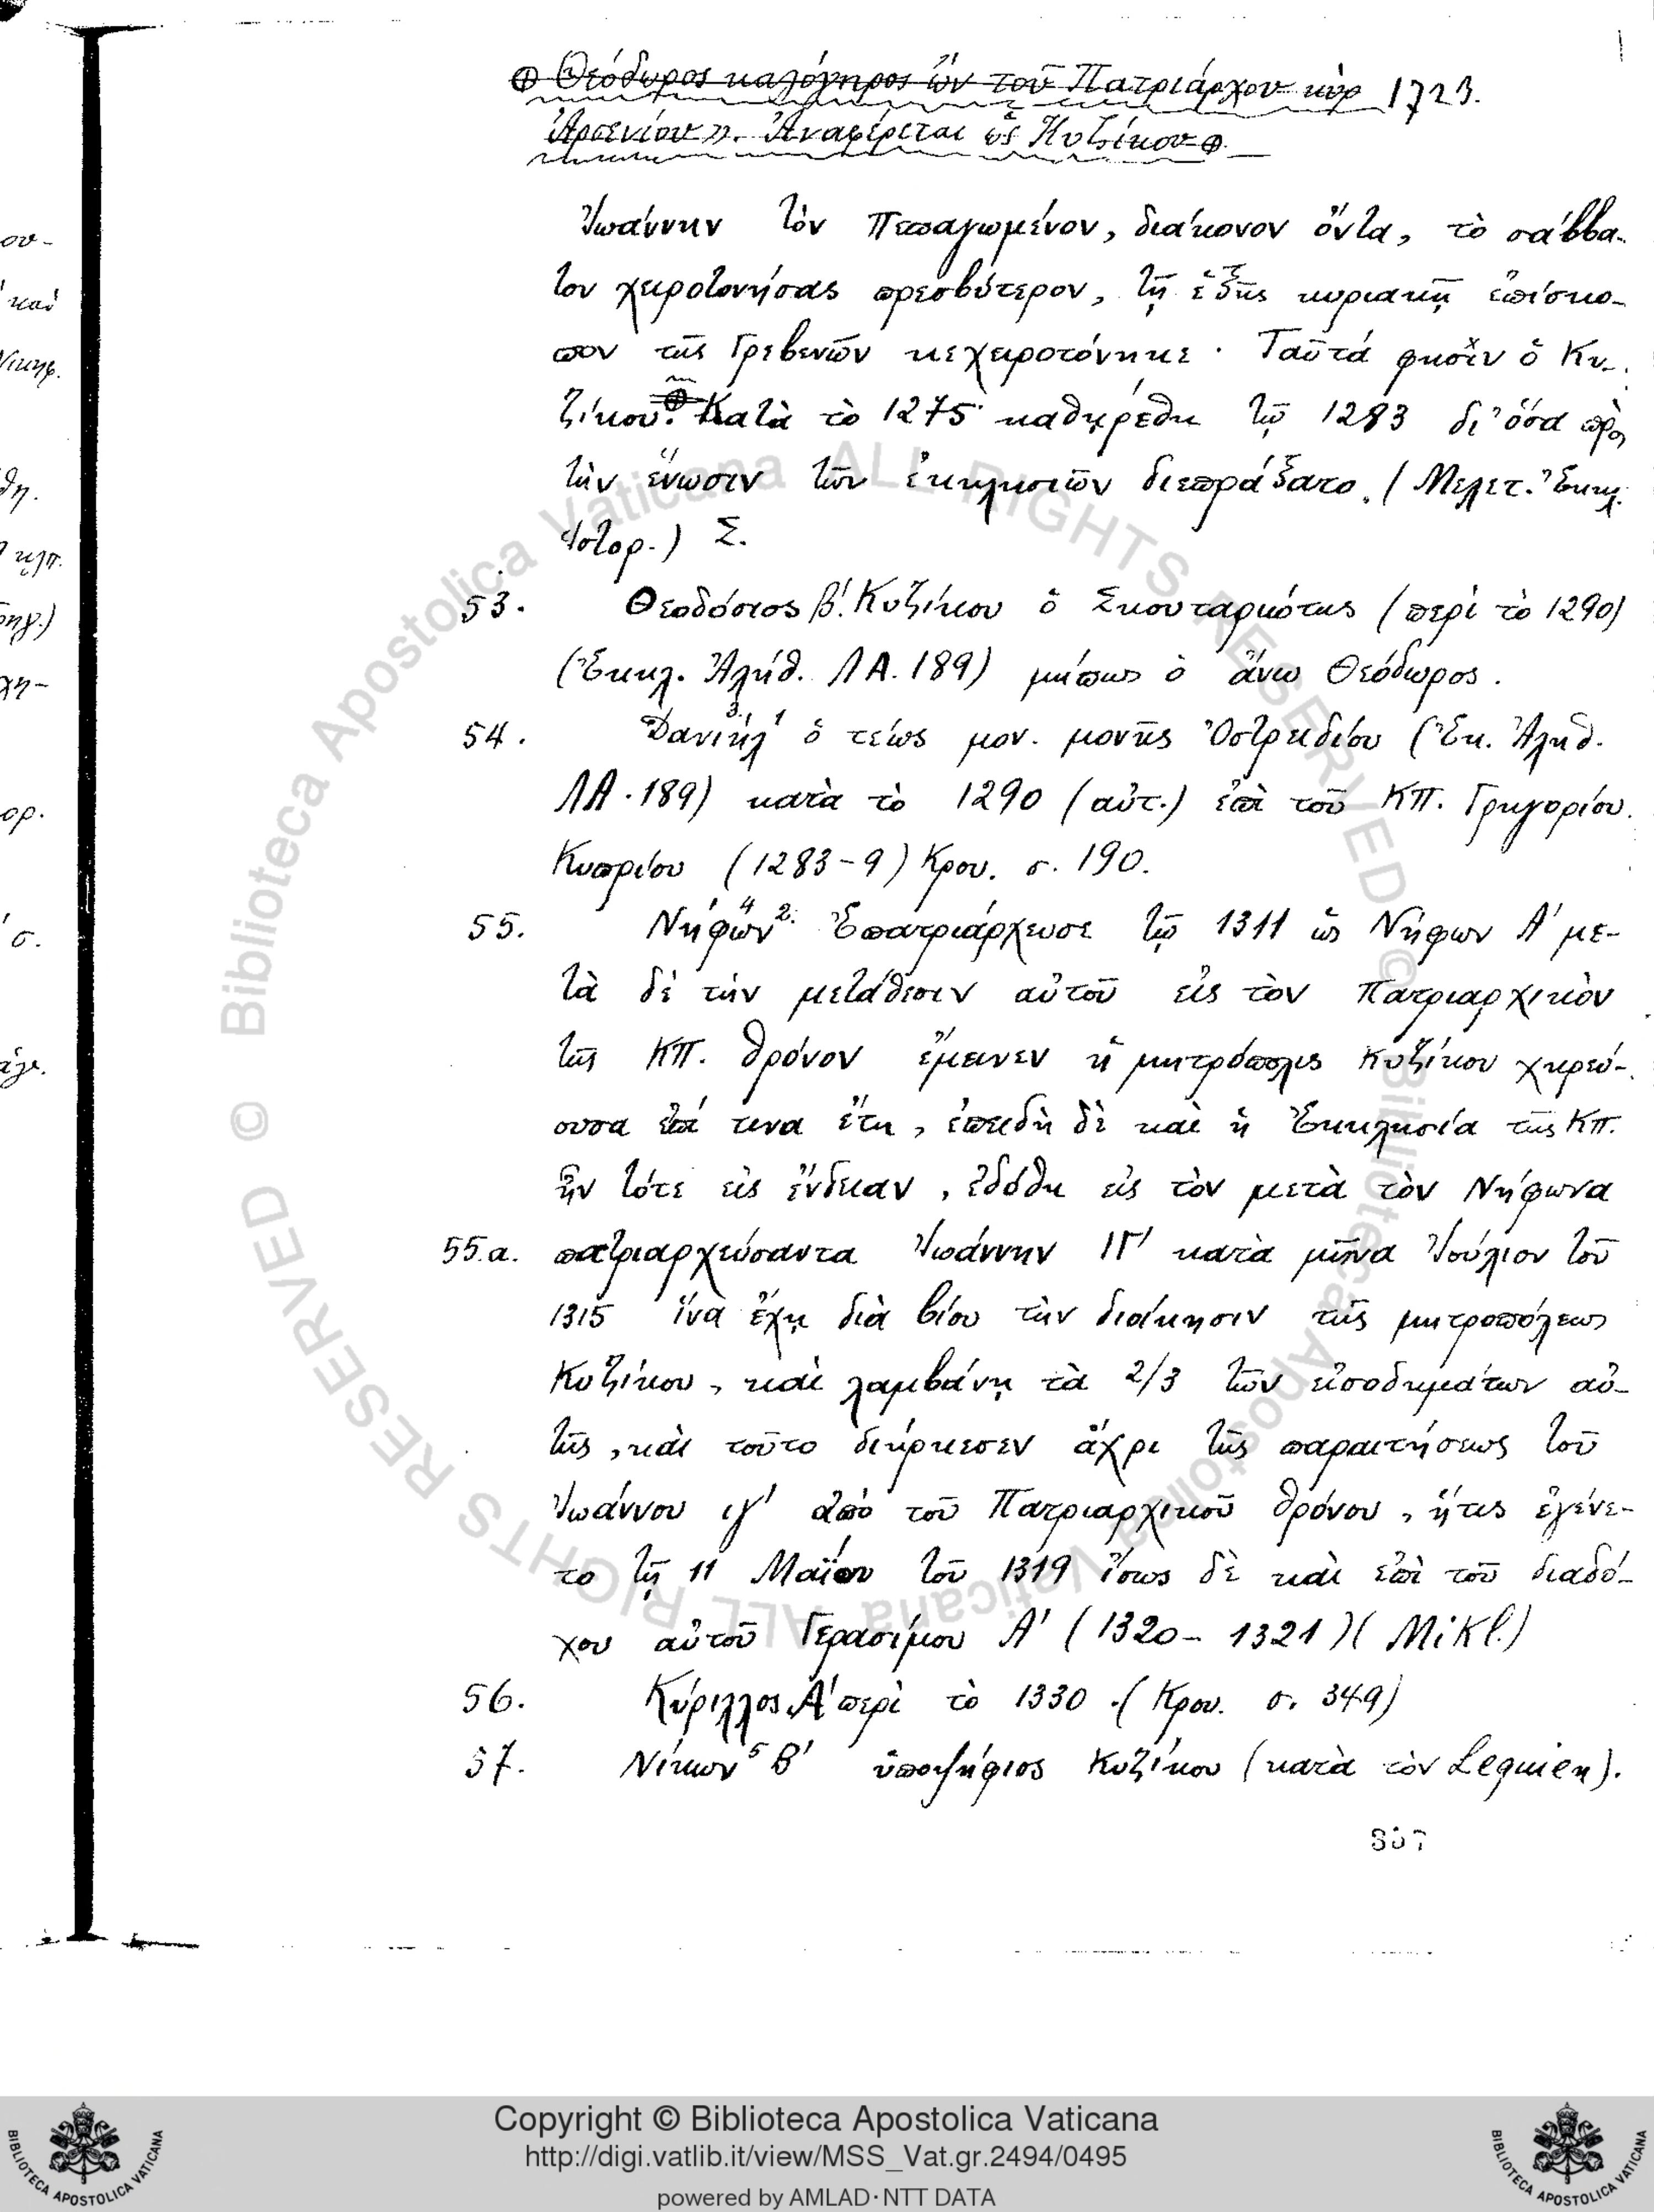 ⊕ Θεόδωρος καλόγηρος ὢν τοῦ Πατριάρχου κὺρ 1723.
Ἀρσενίου». Ἀναφέρεται ὡς Κυζίκου ⊕.
Ἰωάννην τὸν Πεπαγωμένον, διάκονον ὄντα, τὸ σάββα-
τον χειροτονήσας πρεσβύτερον, τῇ ἑξῆς κυριακῇ ἐπίσκο-
πον τῆς Γρεβενῶν κεχειροτόνηκε. Ταῦτά φησὶν ὁ Κυ-
ζίκου. ⊕ Κατὰ τὸ 1275 καθῃρέθη τῷ 1283 δι' ὅσα πρὸς
τὴν ἕνωσιν τῶν ἐκκλησιῶν διεπράξατο. (Μελετ. Ἐκκλ.
Ἱστορ.) Σ.
53. Θεοδόσιος β'. Κυζίκου ὁ Σκουταριώτης (περὶ τὸ 1290)
(Ἐκκλ. Ἀλήθ. ΛΑ. 189) μήπως ὁ ἄνω Θεόδωρος.
54. Δανιήλ ³· ¹ ὁ τέως μον. μονῆς Ὀστρειδίου (Ἐκ. Ἀληθ.
ΛΑ. 189) κατὰ τὸ 1290 (αὐτ.) ἐπὶ τοῦ ΚΠ. Γρηγορίου
Κυπρίου (1283-9) Κρου. σ. 190.
55. Νήφων ⁴ ²· Ἐπατριάρχευσε τῷ 1311 ὡς Νήφων Α' με-
τὰ δὲ τὴν μετάθεσιν αὐτοῦ εἰς τὸν Πατριαρχικὸν
τῆς ΚΠ. θρόνον ἔμεινεν ἡ μητρόπολις Κυζίκου χηρεύ-
ουσα ἐπί τινα ἔτη, ἐπειδὴ δὲ καὶ ἡ Ἐκκλησία τῆς ΚΠ.
ἦν τότε εἰς ἔνδειαν, ἐδόθη εἰς τὸν μετὰ τὸν Νήφωνα
55.α. πατριαρχεύσαντα Ἰωάννην ΙΓ' κατὰ μῆνα Ἰούλιον τοῦ
1315 ἵνα ἔχῃ διὰ βίου τὴν διοίκησιν τῆς μητροπόλεως
Κυζίκου, καὶ λαμβάνῃ τὰ 2/3 τῶν εἰσοδημάτων αὐ-
τῆς, καὶ τοῦτο διήρκεσεν ἄχρι τῆς παραιτήσεως τοῦ
Ἰωάννου ιγ' ἀπὸ τοῦ Πατριαρχικοῦ θρόνου, ἥτις ἐγένε-
το τῇ 11 Μαΐου τοῦ 1319 ἴσως δὲ καὶ ἐπὶ τοῦ διαδό-
χου αὐτοῦ Γερασίμου Α' (1320-1321) (Mikl.)
56. Κύριλλος Α' περὶ τὸ 1330. (Κρου. σ. 349)
57. Νίκων ⁵ Β' ὑποψήφιος Κυζίκου (κατὰ τὸν Lequien).
© Biblioteca Apostolica Vaticana ALL RIGHTS RESERVED © Biblioteca Apostolica Vaticana ALL RIGHTS RESERVED
Copyright © Biblioteca Apostolica Vaticana
http://digi.vatlib.it/view/MSS_Vat.gr.2494/0495
powered by AMLAD·NTT DATA
BIBLIOTECA APOSTOLICA VATICANA
BIBLIOTECA APOSTOLICA VATICANA